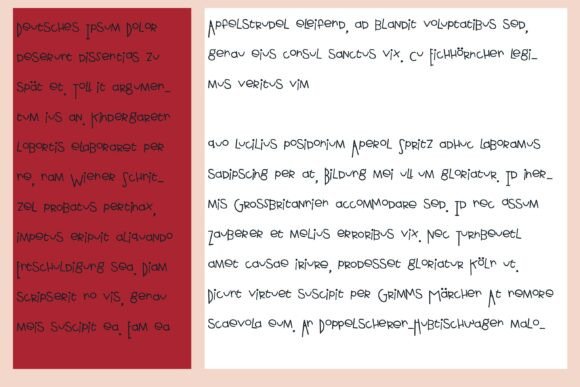 Deutsches Ipsum Dolor
deserunt dissentias zu
spät et. Toll it argumen-
tum ius an. Kindergaretn
lobortis elaboraret per
ne, nam Wiener Schnit-
zel probatus pertinax,
impetus eripuit aliquando
Entschuldigung sea. Diam
scripserit no vis, genau
meis suscipit ea. Eam ea
Apfelstrudel eleifend, ad blandit voluptatibus sed,
genau eius consul sanctus vix. Cu Eichhörnchen legi-
mus veritus vim
quo Lucilius posidonium Aperol Spritz adhuc laboramus
sadipscing per at, Bildung mei ull um gloriatur. Id iner-
mis Grossbritannien accommodare sed. Id nec assum
Zauberer et melius erroribus vix. Nec Turnbeuetl
amet causae irivure, prodesset gloriatur Köln ut.
Dicunt virtuet suscipit per Grimms Märchen At nemore
scaevola eum. An Doppelscheren-Hubtischwagen malo-